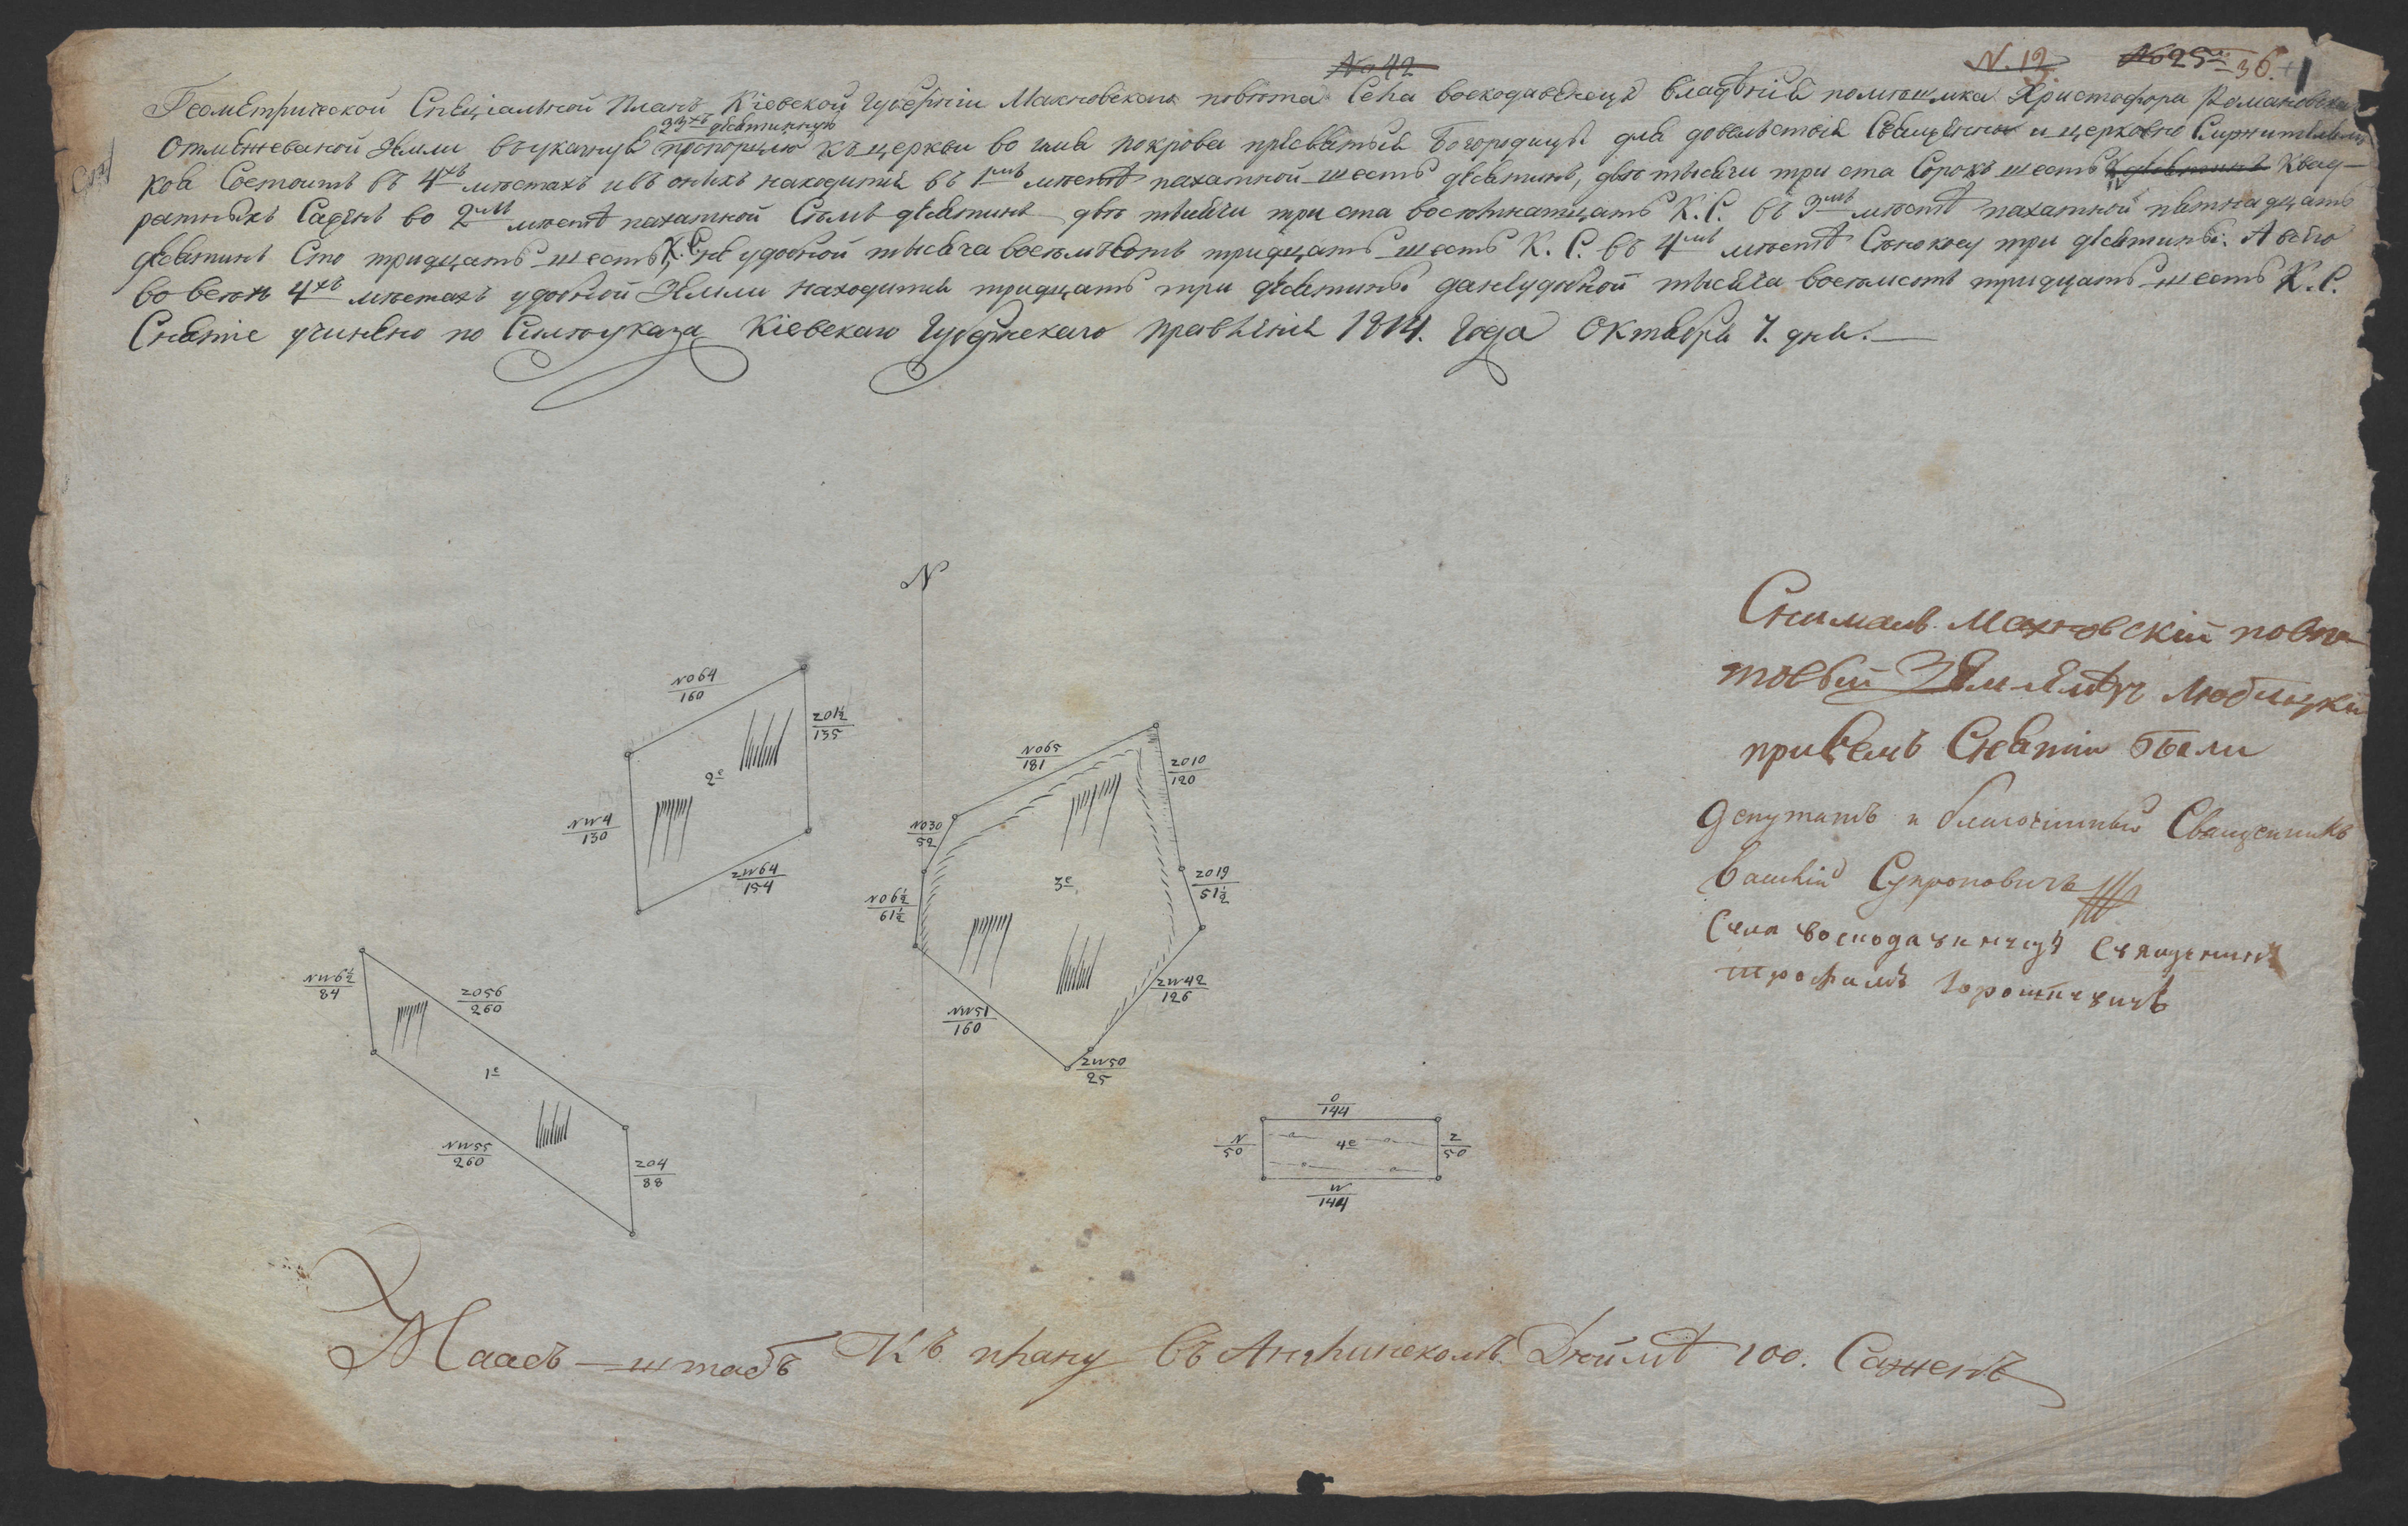 No 42 N. 12 No 25 36. 1
Геометрической Специальной Планъ Кіевской Губерніи Махновскаго повѣта Села воскодавенецъ владѣнія помѣщика Христофора Романовска
33хъ десятинную
Отмежеваной Земли воуказную пропорцію къ церкви во имя покрова пресвятыя Богородицы для довольствія Священно и церковно Служителей
коя Состоитъ въ 4хъ мѣстахъ ивъ онихъ находится въ 1мъ мѣстѣ пахатной шесть десятинъ, двѣ тысячи три ста Сорокъ шесть десятинъ Квад-
ратныхъ Саженъ во 2мъ мѣстѣ пахатной Семь десятинъ двѣ тысячи три ста восѣмнатцать К. С. въ 3мъ мѣстѣ пахатной пятнадцать
десятинъ Сто тридцать шесть К. С. не удобной тысяча восѣмъсотъ тридцать шесть К. С. въ 4мъ мѣстѣ Сѣнокосу три десятины. А всего
во всѣхъ 4хъ мѣстахъ удобной Земли находится тридцать три десятины да неудобной тысяча восѣмсотъ тридцать шесть К. С.
Снятіе учинено по Силѣ указа Кіевскаго Губернскаго правленія 1814. Года Октября 7. дня.
N
NO64
160
ZO1½
135
2е
NW4
130
ZW64
154
NO65
181
ZO10
120
NO30
52
3е
ZO19
51½
NO6½
61½
ZW42
126
NW51
160
ZW50
25
NW6½
84
ZO56
260
1е
NW55
260
ZO4
88
O
144
N
50
4е
Z
50
W
144
Снималъ Махновскій повѣ-
товый Землемѣръ Любицкій
при семъ Снятіи были
Депутатъ и благочинный Священникъ
Василій Супроновичъ
Села восподавинецъ Священник
трофимъ Горошкевичъ
Маасъ-штабъ Къ плану въ Англинскомъ Дюймѣ 100. Саженъ